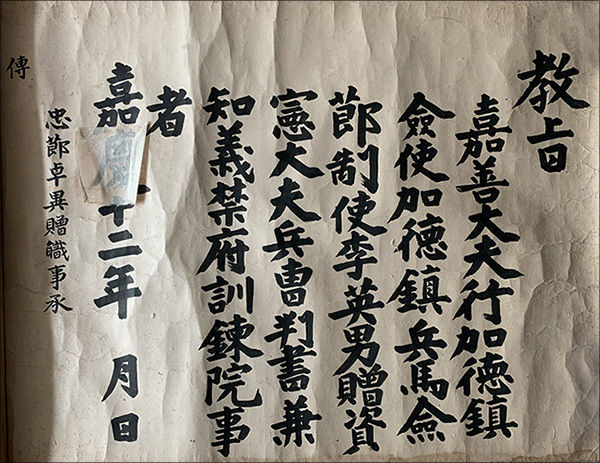 教旨
嘉善大夫行加德鎮
僉使加德鎮兵馬僉
節制使李英男贈資
憲大夫兵曹判書兼
知義禁府訓鍊院事
者
嘉 十二年 月 日
忠節卓異贈職事承
傳